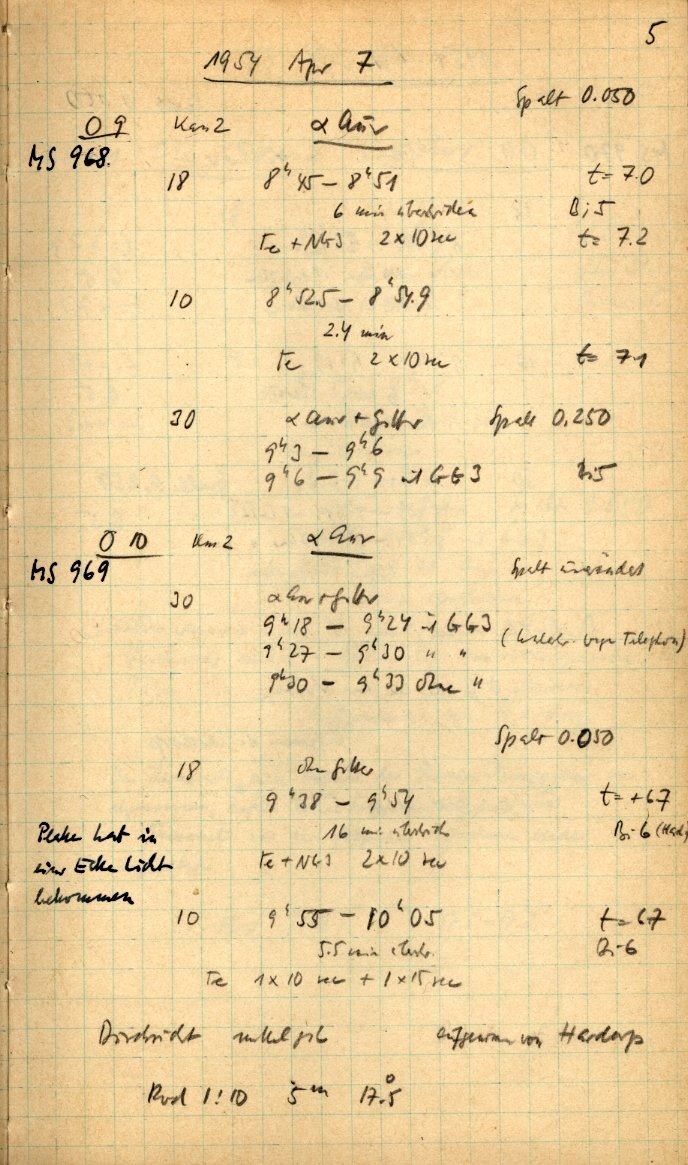 5
1954 Apr 7
Spalt 0.050
O 9 Kam 2 α Aur
MS 968.
18 8ʰ45 – 8ʰ51 t = 7.0
6 min Bi 5
Fe + NG3 2 x 10 sec t = 7.2
10 8ʰ52.5 – 8ʰ54.9
2.4 min
Fe 2 x 10 sec t = 7.1
30 α Aur + Gitter Spalt 0.250
9ʰ3 – 9ʰ6
9ʰ6 – 9ʰ9 mit GG3 Bi 5
O 10 Kam 2 α Aur
MS 969
Spalt unverändert
30 α Aur + Gitter
9ʰ18 – 9ʰ24 mit GG3
9ʰ27 – 9ʰ30 " " ( wegen Telephon)
9ʰ30 – 9ʰ33 ohne "
Spalt 0.050
18 ohne Gitter
9ʰ38 – 9ʰ54 t = +6.7
16 min Bi 6
Fe + NG3 2 x 10 sec
Platte hat in
einer Ecke Licht
bekommen
10 9ʰ55 – 10ʰ05 t = 6.7
5.5 min Bi 6
Fe 1 x 10 sec + 1 x 15 sec
Durchsicht aufgenommen von Hardorp
Rod 1:10 5ᵐ 17.°5